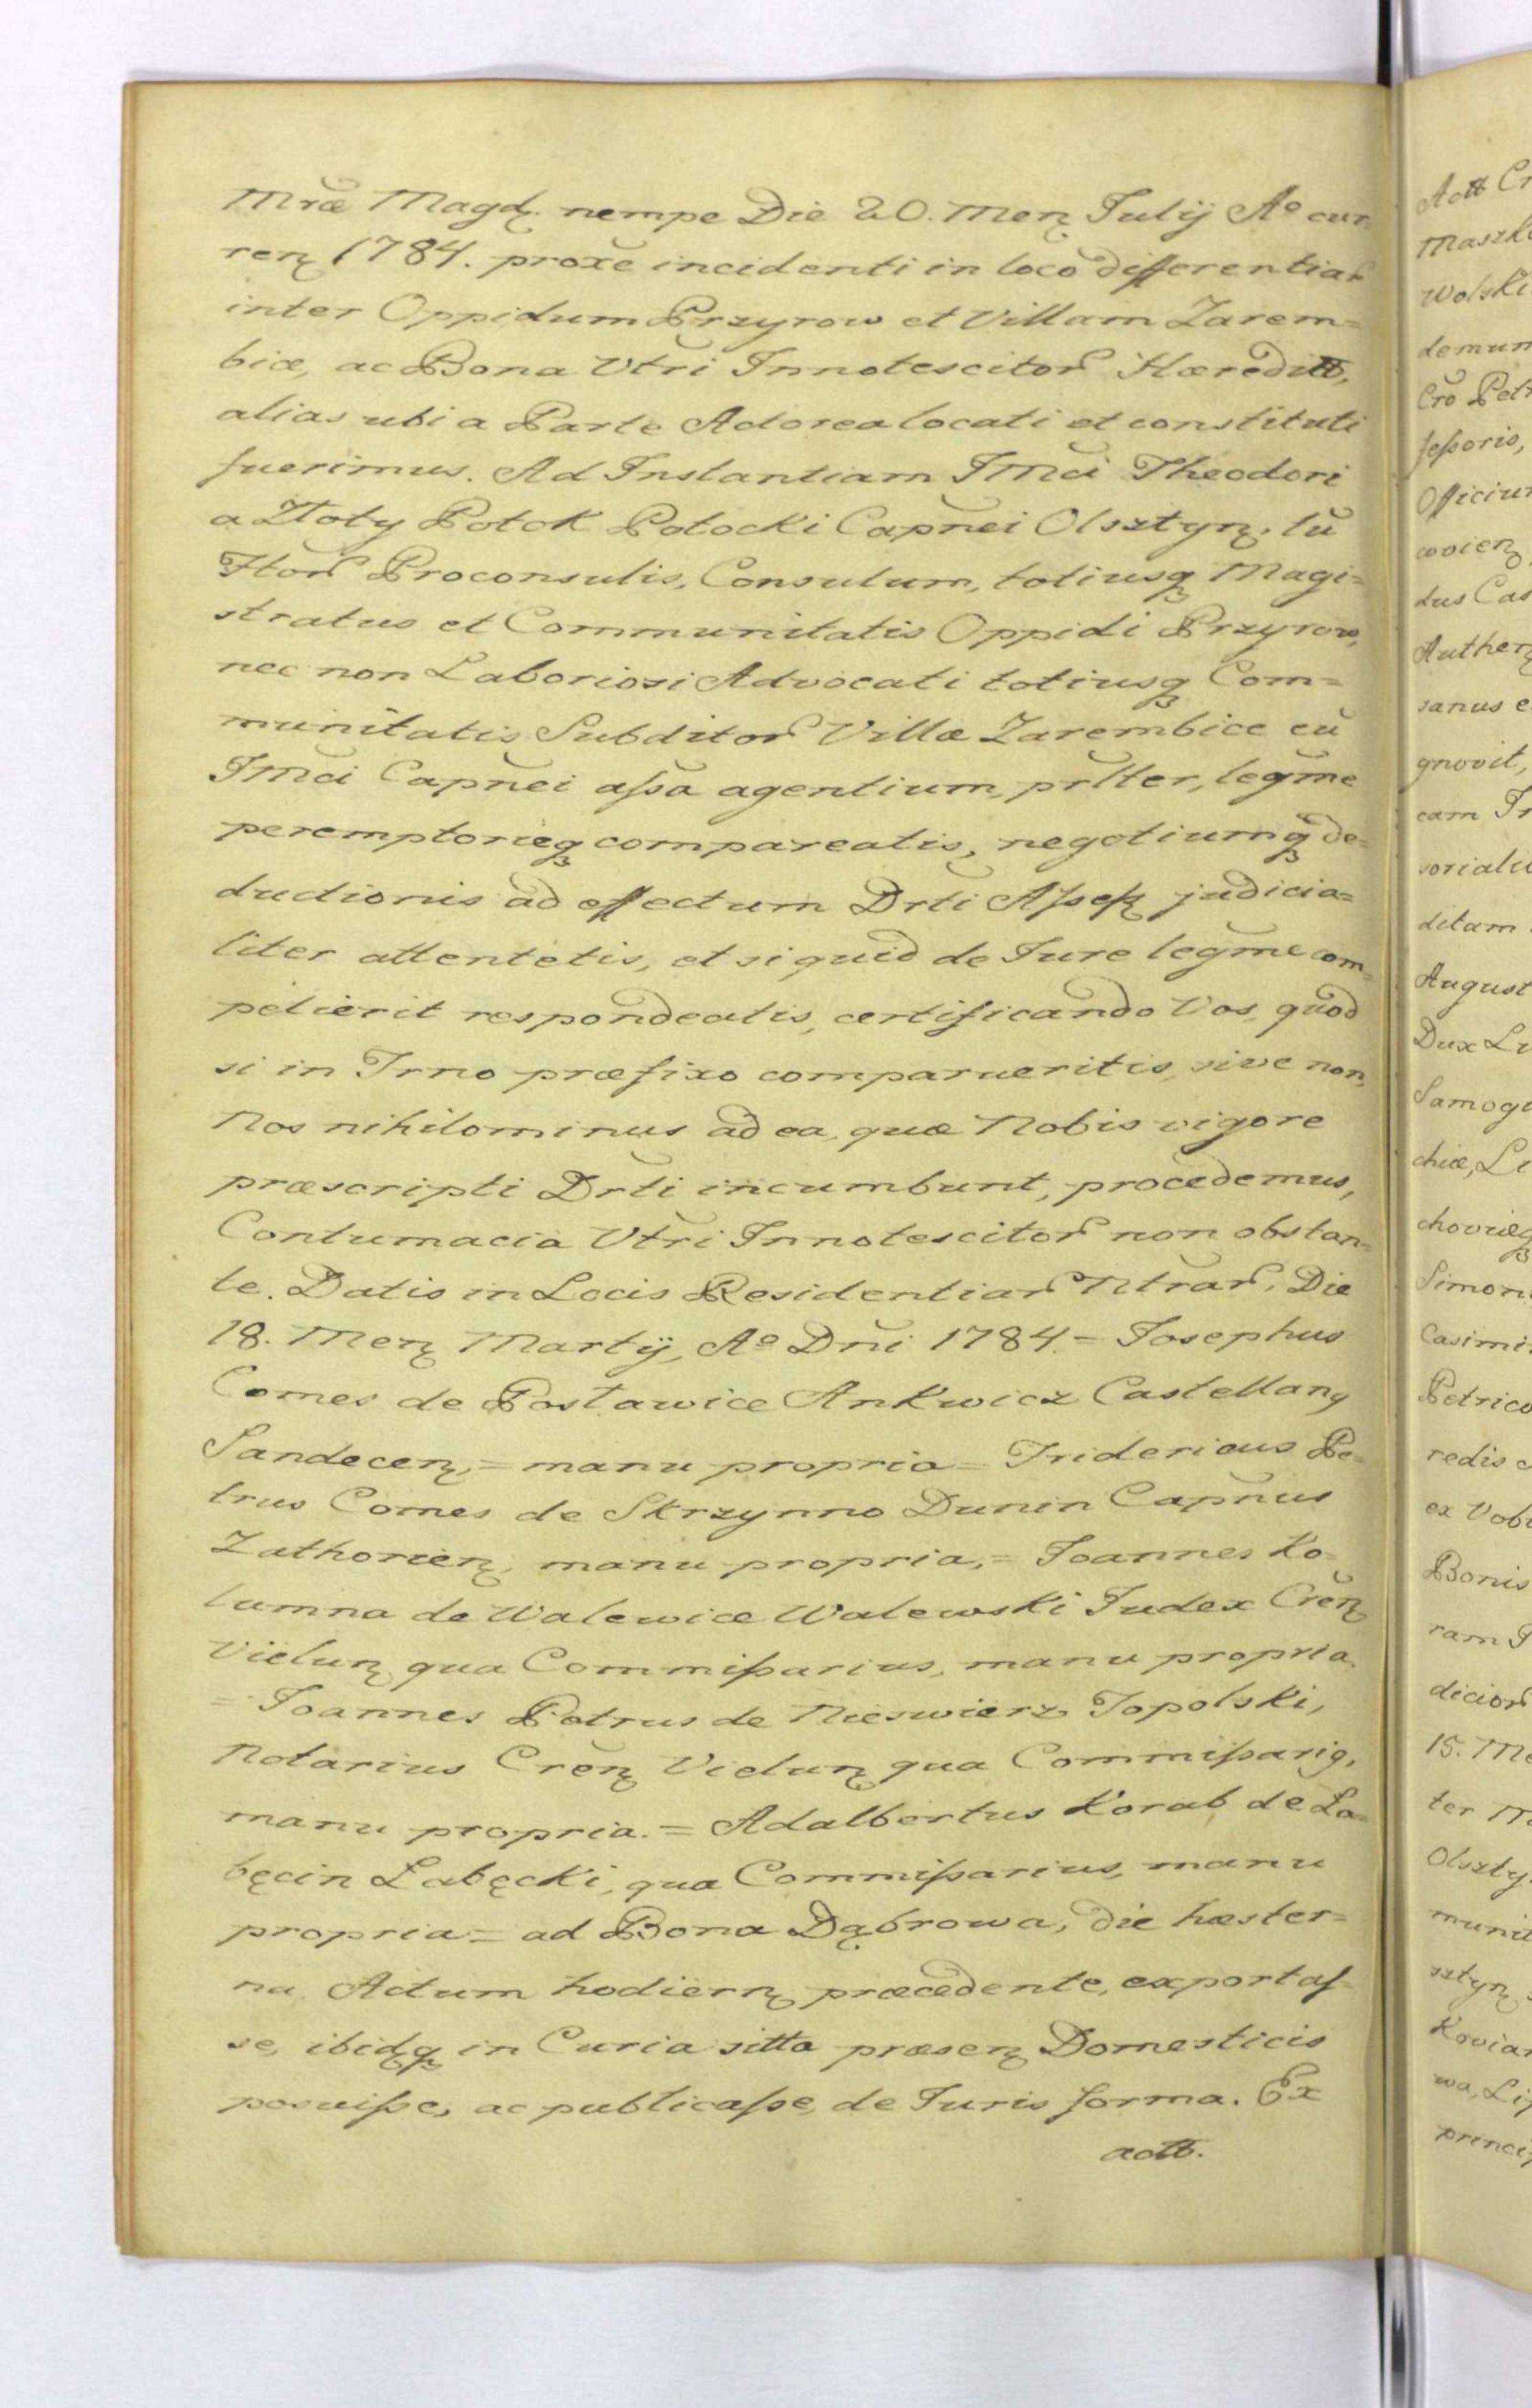 Mræ Magd. nempe Die 20. Men Julij Aº cur-
ren 1784. proxe incidenti in loco differentiar
inter Oppidum Przyrow et Villam Zarem=
bice, ac Bona Vtri Innotescitor Hæreditt,
alias ubi a Parte Actorea locati et constituti
fuerimus. Ad Instantiam JMci Theodori
a Złoty Potok Potocki Capnei Olsztyn. tu
Htor Proconsulis, Consulum, totiusq Magi=
stratus et Communitatis Oppidi Przyrow,
nec non Laboriosi Advocati totiusq Com=
munitatis Subditor Villæ Zarembice cu
JMci Capnei assa agentium, prlter, legme
peremptorieq compareatis, negotiumq de=
ductionis ad effectum Drti Assess judicia=
liter attentetis, et si quid de Jure legme com=
petierit respondeatis, certificando Vos, quod
si in Trno præfixo comparueritis, sive non,
Nos nihilominus ad ea, quæ Nobis vigore
præscripti Drti incumbunt, procedemus,
Contumacia Vtri Innotescitor non obstan=
te. Datis in Locis Residentiar Ntrar, Die
18. Men Martij, Aº Dni 1784. = Josephus
Comes de Postawice Ankwicz Castellanq
Sandecen, = manu propria = Fridericus Pe=
trus Comes de Skrzynno Dunin Capnus
Zathorien, manu propria, = Joannes Ko=
lumna de Walewice Walewski Judex Cren
Vielun qua Commissarius, manu propria.
= Joannes Petrus de Nieswierz Topolski,
Notarius Cren Vielun qua Commissariq,
manu propria. = Adalbertus Korab de La=
bęcin Labęcki, qua Commissarius, manu
propria = ad Bona Dąbrowa, die hæster=
na, Actum hodiern præcedente, exportas=
se, ibidq in Curia sitta præsen Domesticis
posuisse, ac publicasse, de Juris forma. Ex
actt.
Actt Cr
Maszk
Wolski
demum
Cro Pet
sessoris,
Officiu
woien
dus Cas
Authen
sanus e
gnovit,
eam Tr
soriali
ditam
August
Dux Li
Samogi
chiæ, Li
choviæq
Simon
Casimi
Petrico
redis
ex Vob
Bonis
ram
dicior
15. Me
ter M
Olszty
munit
sztyn
Kovia
wa, Li
princi